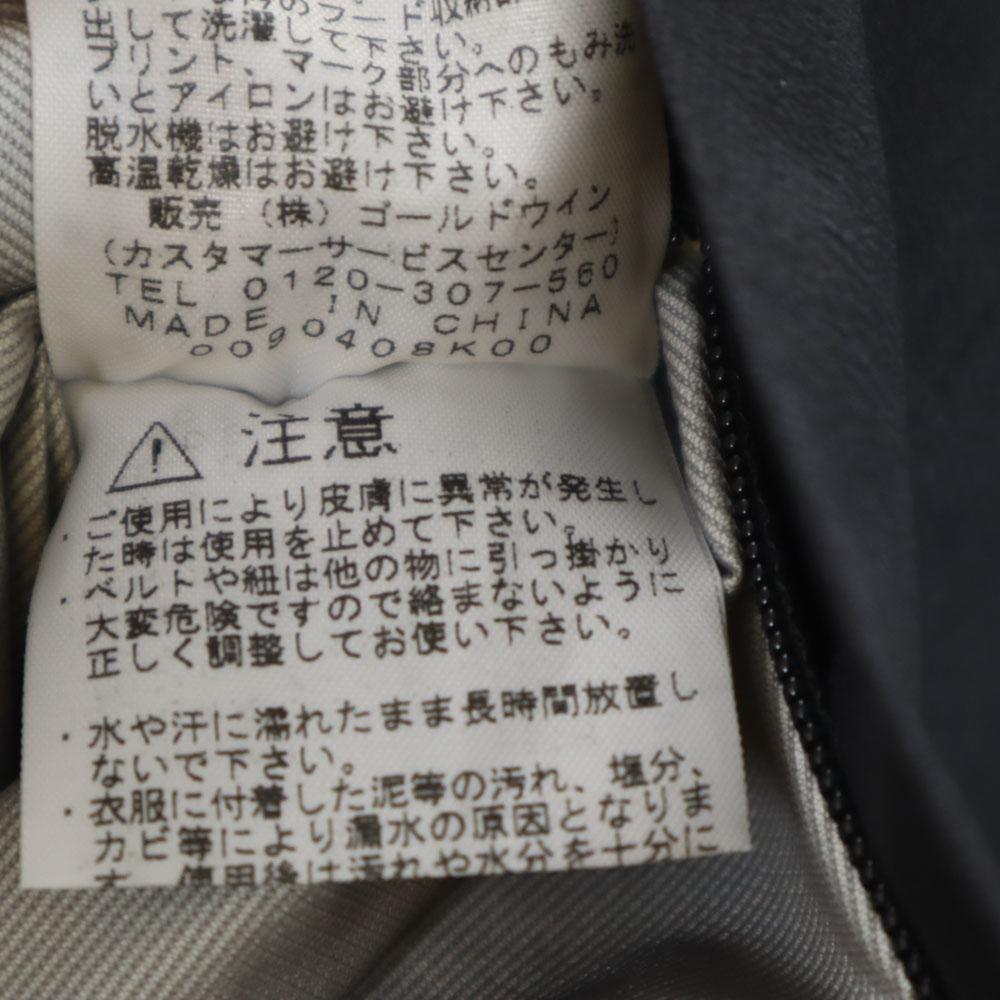 出して洗濯して下さい。
プリント、マーク部分へのもみ洗
いとアイロンはお避け下さい。
脱水機はお避け下さい。
高温乾燥はお避け下さい。
販売 (株) ゴールドウイン
(カスタマーサービスセンター)
TEL 0120-307-560
MADE IN CHINA
0090408K00
注意
・ご使用により皮膚に異常が発生し
た時は使用を止めて下さい。
・ベルトや紐は他の物に引っ掛かり
大変危険ですので絡まないように
正しく調整してお使い下さい。
・水や汗に濡れたまま長時間放置し
ないで下さい。
・衣服に付着した泥等の汚れ、塩分、
カビ等により漏水の原因となりま
す。使用後は汚れや水分を十分に